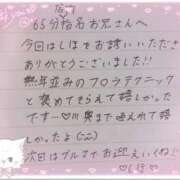 65分指名お兄さんへ
今回はしほをお誘いいただき
ありがとうございました!!
熟年並みのフロウテクニック
と褒めてもらえて嬉しかった
です…♡!! 奥まで届えれて嬉
しかったよ(;;)
次回はブルマでお迎えいくね♪
♡しほ♡